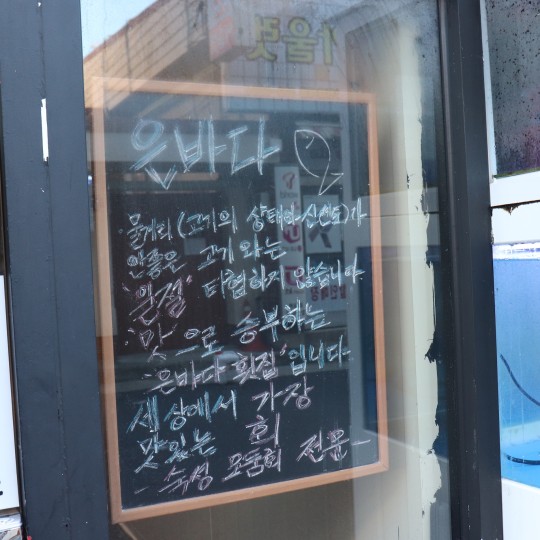 은바다
·물게의 (고기의 상태와 신선도)가
안좋은 고기 와는
'일절' 타협하지 않습니다.
'맛'으로 승부하는
'은바다 횟집'입니다.
세상에서 가장
맛있는 회
- 숙성 모둠회 전문 -